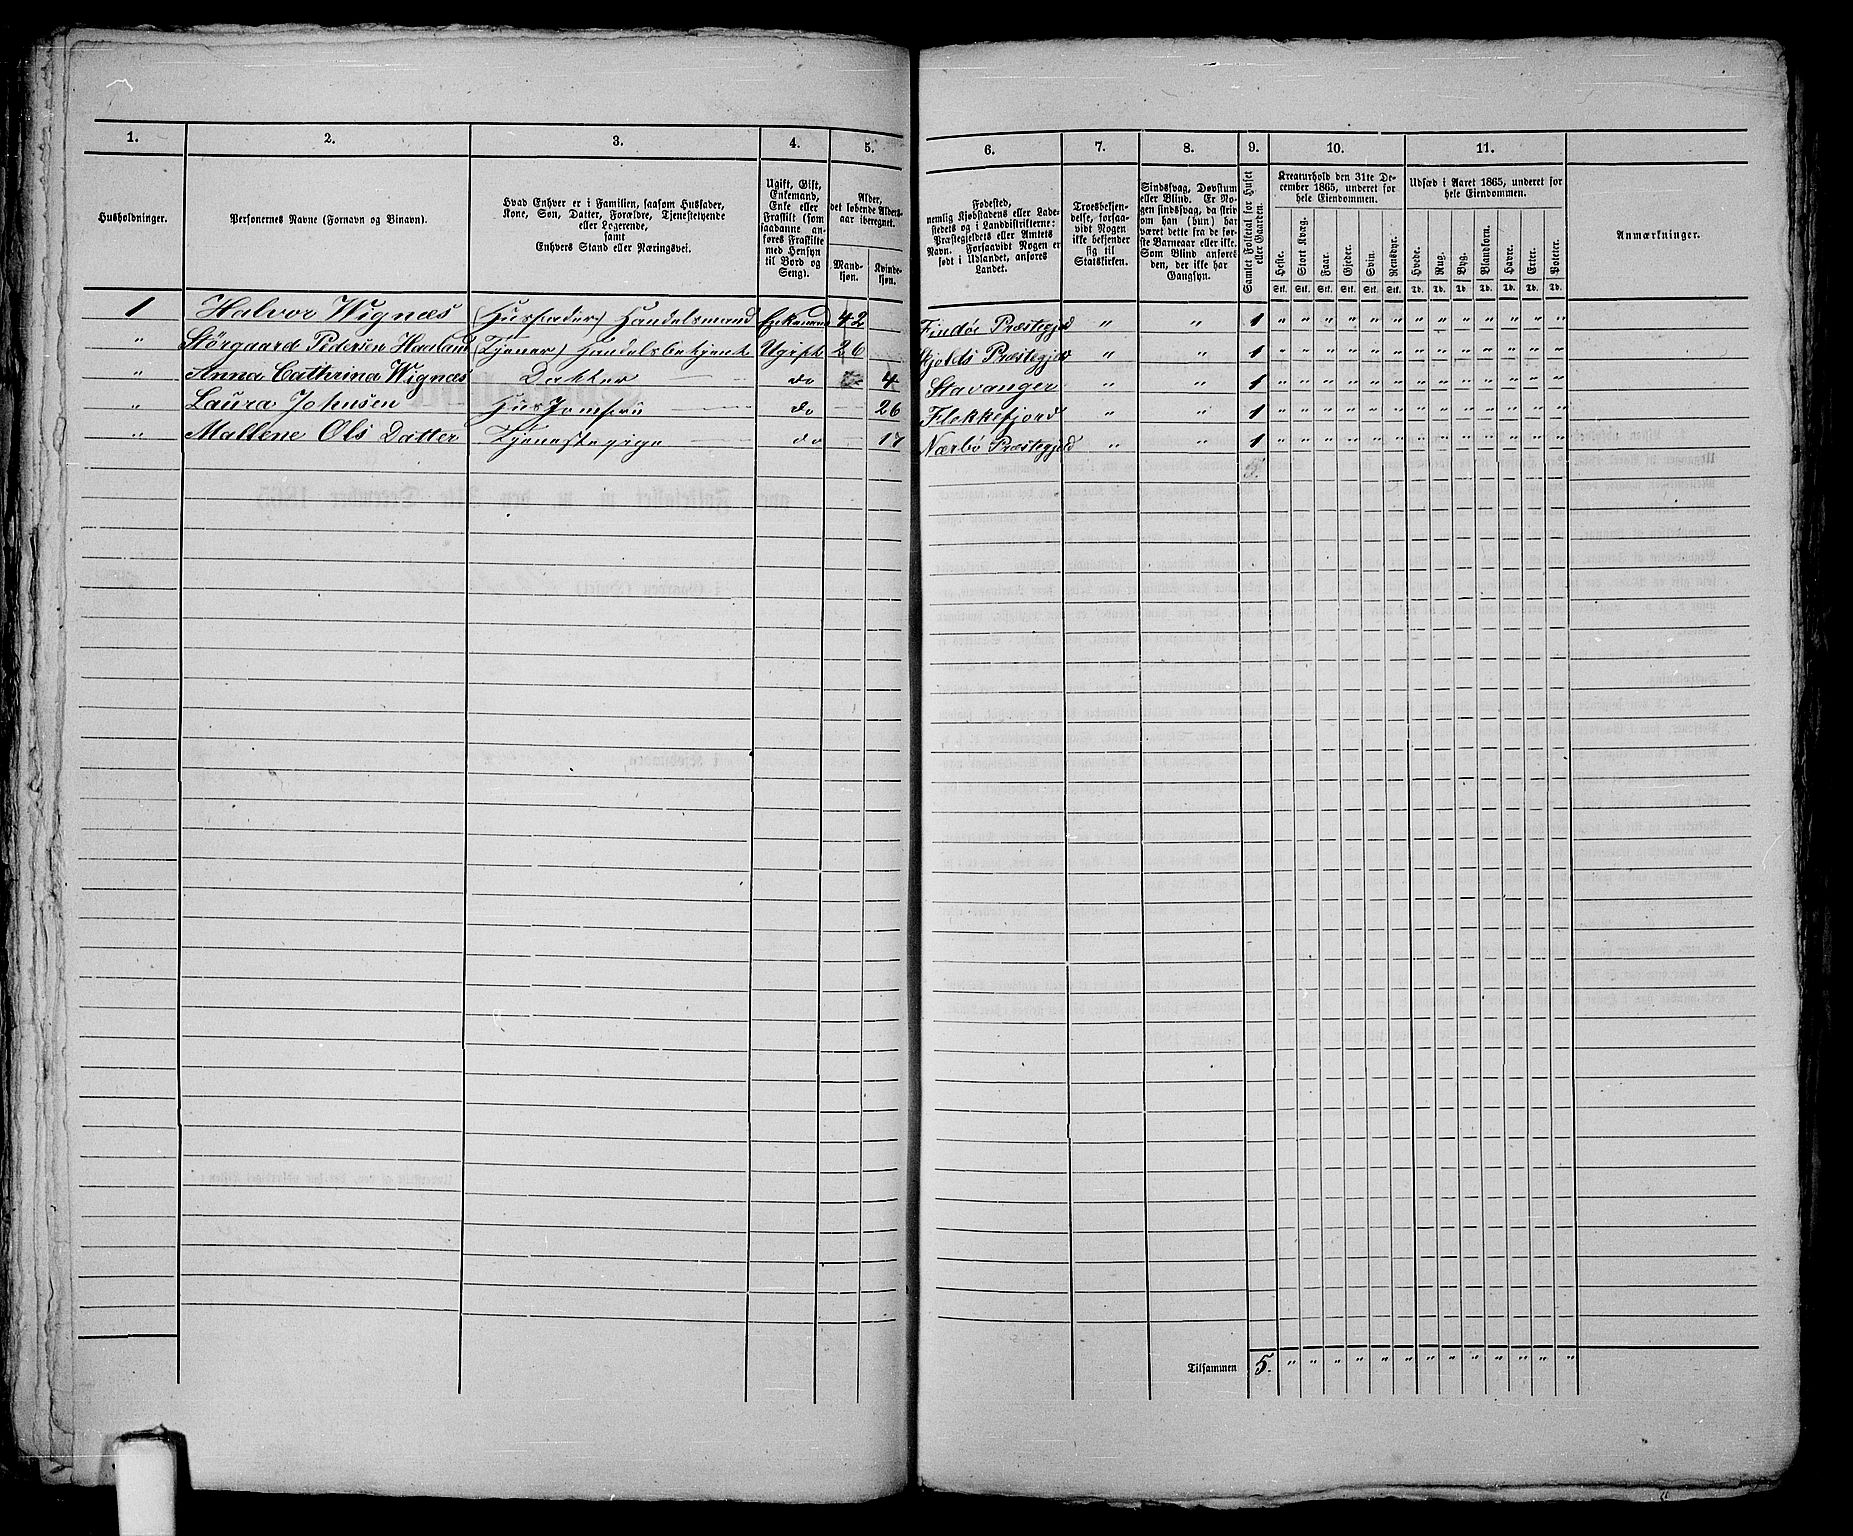 1. 2. 3. 4. 5. 6. 7. 8. 9. 10. 11.
Husholdninger.
Personernes Navne (Fornavn og Binavn).
Hvad Enhver er i Familien, saasom Husfader,
Kone, Søn, Datter, Forældre, Tjenestetyende
eller Logerende,
samt
Enhvers Stand eller Næringsvei.
Ugift, Gift,
Enkemand,
Enke eller
Fraskilt (som
saadanne an-
føres Fraskilte
med Hensyn
til Bord og
Seng).
Alder,
det løbende Alders-
aar iberegnet.
Mand-
kjøn.
Kvinde-
kjøn.
Fødested,
nemlig Kjøbstadens eller Lade-
stedets og i Landdistrikterne:
Præstegjeldets eller Amtets
Navn. Forsaavidt Nogen er
født i Udlandet, anføres
Landet.
Troesbekjen-
delse, forsaa-
vidt Nogen
ikke bekjender
sig til
Statskirken.
Sindssvag, Døvstum
eller Blind. Er No-
gen sindssvag, da skriv
om han (hun) har
været dette fra de før-
ste Barneaar eller ikke.
Som Blind anføres
den, der ikke har
Gangsyn.
Samlet Folketal for Huset
eller Gaarden.
Kreaturhold den 31te De-
cember 1865, underet for
hele Eiendommen.
Heste. Stort Kvæg. Faar. Gjeder. Svin. Rensdyr.
Stk. Stk. Stk. Stk. Stk. Stk.
Udsæd i Aaret 1865, underet for
hele Eiendommen.
Hvede. Rug. Byg. Blandkorn. Havre. Erter. Poteter.
Td. Td. Td. Td. Td. Td. Td.
Anmærkninger.
1 Halvor Wignæs (Husfader) Handelsmand Enkemand 42 Findøe Præstegjeld " " 1 " " " " " " " " " " " " "
" Pedersen Haaland (Tjener) Handelsbetjent Ugift 26 Skjolds Præstegjeld " " 1 " " " " " " " " " " " " "
" Anna Cathrina Wignæs Datter do 4 Stavanger " " 1 " " " " " " " " " " " " "
" Laura Johnsen Husjomfru do 26 Flekkefjord " " 1 " " " " " " " " " " " " "
" Mallene Ols Datter Tjenestepige do 17 Nærbö Præstegjeld " " 1 " " " " " " " " " " " " "
5.
Tilsammen 5. " " " " " " " " " " " " "